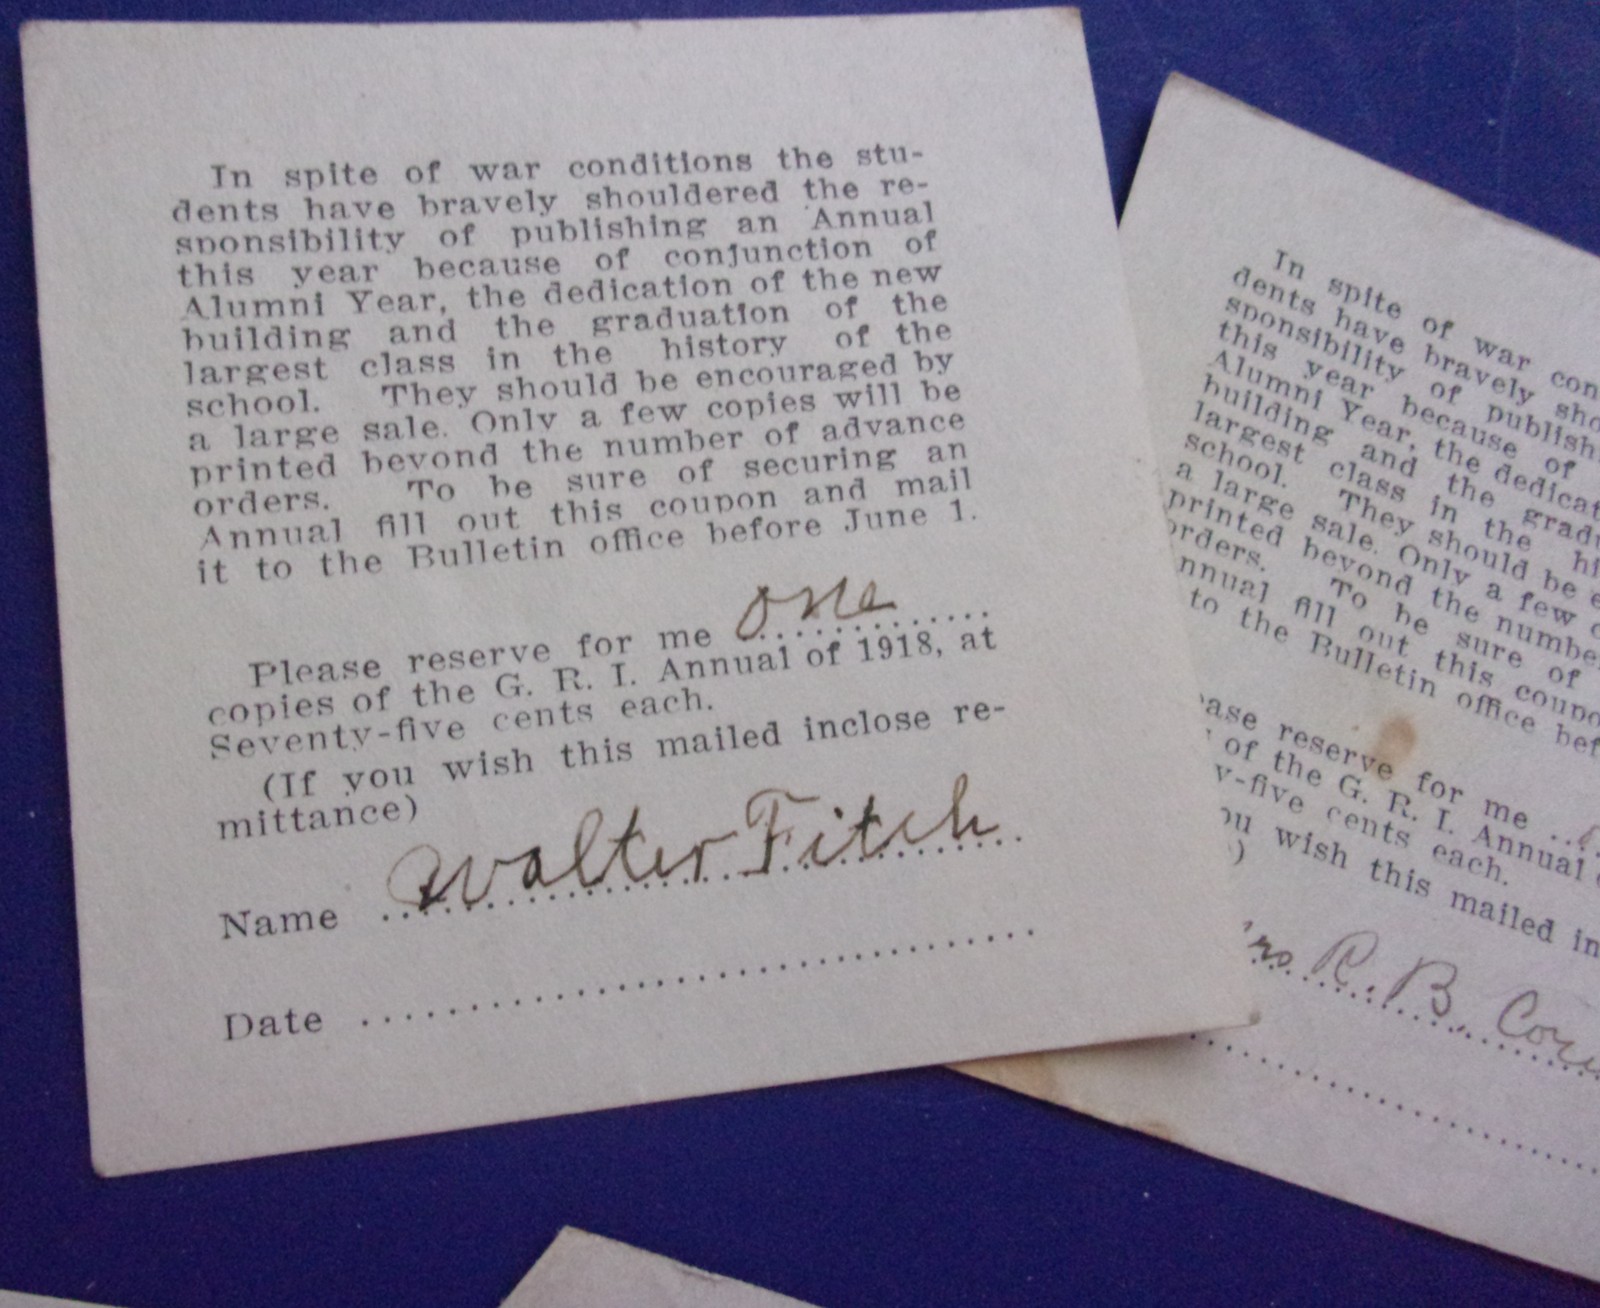 In spite of war conditions the stu-
dents have bravely shouldered the re-
sponsibility of publishing an Annual
this year because of conjunction of
Alumni Year, the dedication of the new
building and the graduation of the
largest class in the history of the
school. They should be encouraged by
a large sale. Only a few copies will be
printed beyond the number of advance
orders. To be sure of securing an
Annual fill out this coupon and mail
it to the Bulletin office before June 1.
Please reserve for me one
copies of the G. R. I. Annual of 1918, at
Seventy-five cents each.
(If you wish this mailed inclose re-
mittance)
Name Walter Fitch
Date
In spite of war con
dents have bravely sho
sponsibility of publish
this year because of
Alumni Year, the dedicat
building and the gradu
largest class in the hi
school. They should be e
a large sale. Only a few c
printed beyond the numbe
orders. To be sure of
nnual fill out this coupo
to the Bulletin office bef
ease reserve for me
of the G. R. I. Annual
y-five cents each.
ou wish this mailed in
)
rs R. B. Cor